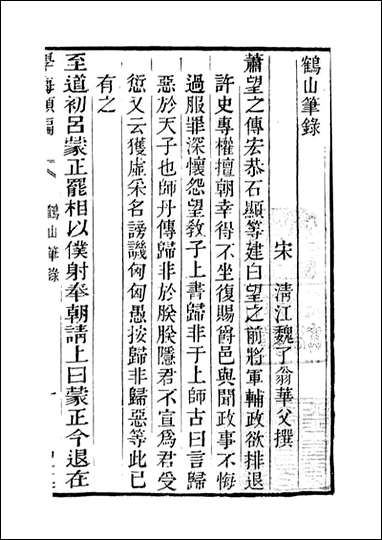 鶴山筆錄
宋　清江魏了翁華父撰
蕭望之傳宏恭石顯等建白望之前將軍輔政欲排退
許史專權擅朝幸得不坐復賜爵邑與聞政事不悔
過服罪深懷怨望教子上書歸非于上師古曰言歸
惡於天子也師丹傳歸非於朕朕隱君不宣爲君受
愆又云獲虛采名謗譏匈匈愚按歸非歸惡等此已
有之
至道初呂蒙正罷相以僕射奉朝請上曰蒙正今退在
學海類編
鶴山筆錄
一